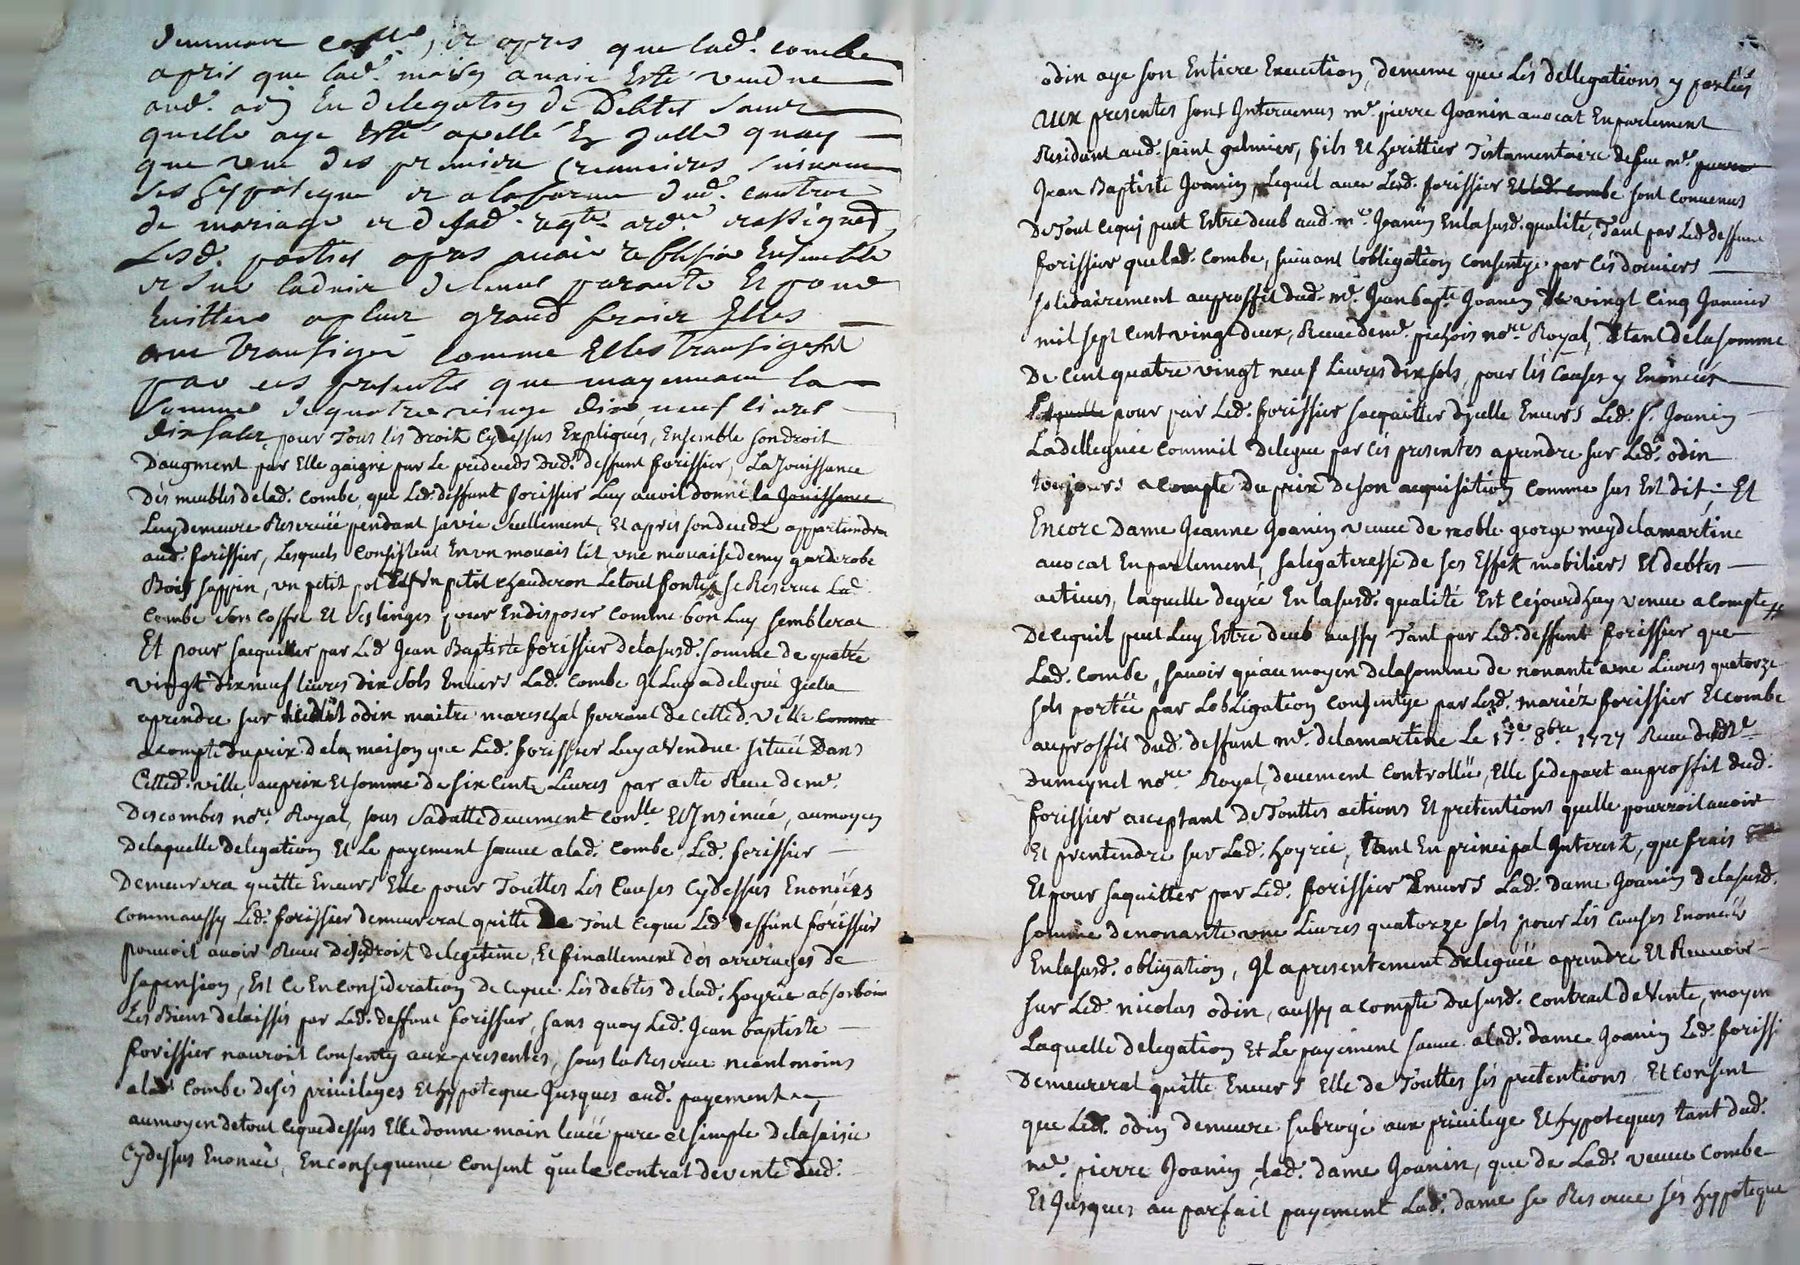 apres que lad.e combe
apris que lad.e maison avoit Esté vendue
aud. odin En delegation de Debtes sans
quelle aye Esté apellé Et Jolle quoy
que une des premiere Creancieres suivant
ses hypoteque et a la forme dud. contrat
de mariage et de lad.
Lesd. parties apres avoir reflesion Ensemble
et sur ladvis de leurs parants Et pour
Evittere a plus grand fraix Elles
ont transigér comme Elles transigent
par ces presentes que moyennant la
somme de quatre vingt dix neuf livres
dix sols, pour Tous les droits Cydessus Expliqués, Ensemble son droit
D'augment par Elle gaigné par Le prédeceds dud. deffunt forissier, La Jouissance
Des meubles de lad. Combe, que Led. deffunt forissier Luy avoit donné la Jouissance
Luy demeure Reservée pendant sa vie seullement, Et après son deceds appartiendra
aud. forissier, Lesquels Consistent En un mouais lit une mouaise demy garderobe
Bois sappin, un petit pot un petit chauderon Le tout fonte, se Reserve Lad.
Combe son coffre Et ses linges pour En disposer Comme bon Luy semblerat
Et pour sacquitter par Led. Jean Baptiste forissier de la susd. somme de quatre
vingt dix neuf livres dix sols Envers Lad. Combe Il Luy a delegué Icelle
a prendre sur odin maitre mareschal ferrant de cette d. ville comme
a compte du prix de la maison que Led. forissier Luy a vendue située Dans
Cetted. ville, au prix Et somme de six Cents Livres par acte Receu de m.e
Descombes no.re Royal, sous sa datte deuement con.lle Et Insinué, au moyen
De laquelle delegation Et Le payement sauve a lad. Combe, Led. forissier
Demeurera quitte Envers Elle pour Touttes Les Causes Cydessus Enoncées
Comm aussy Led. forissier demeurerat quitte De Tout ce que Led. deffunt forissier
pouvoit avoir Receu des droits de legitime, Et finallement des arrerages de
sa pension, Est Ce En Consideration de ce que Les debtes de lad. hoyrie absorboint
Les Biens delaissés par Led. deffunt forissier, sans quoy Led. Jean baptiste
forissier nauroit Consenty aux presentes, sous la Reserve neantmoins
a lad. Combe de ses privileges Et hypoteque Jusques aud. payement
au moyen de tout ce que dessus Elle donne main levée pure et simple de la saisie
Cydessus Enoncée, En consequence Consent que le Contrat de vente dud.
odin aye son Entiere Execution, de meme que Les dellegations y portées
Aux presentes sont Intervenus m.e pierre Joanin avocat En parlement
Residant aud. saint galmier, fils Et herittier Testamentaire de feu m.e
Jean Baptiste Joanin, Lequel avec Led. forissier Et lad. Combe sont convenus
De Tout ce qui peut Estre deub aud. m.e Joanin En la susd. qualité, Tant par Led. deffunt
forissier que lad. Combe, suivant l'obligation Consentye par Ces dorniers
solidairement au proffit dud. m.e Jean bapt.e Joanin Le vingt Cinq Janvier
mil sept Cent vingt deux, Receu de m.e pichois no.re Royal, Etant de la somme
De Cent quatre vingt neuf Livres dix sols, pour Les Causes y Enoncées
Laquelle pour par Led. forissier sacquitter dycelle Envers Led. s.r Joanin
La delleguée Commil delegue par Ces presentes a prendre sur Led. odin
toujours a compte du prix de son acquisition Comme sus Est dit. Et
Encore Dame Jeanne Joanin veuve de noble george mey de la martine
avocat En parlement, sa legateresse de ses Effets mobiliers Et debtes
actives, laquelle de gré En la susd. qualité Est Cejourdhuy venue a Compte
De Ce qu'il peut Luy Estre deub aussy Tant par Led. deffunt forissier que
Lad. Combe, savoir qu'au moyen de la somme de nonante une Livres quatorze
sols portée par Lobligation Consentye par Lesd. mariéz forissier Et Combe
au proffit dud. deffunt m.e de la martine Le 8.bre 1727 Receu
Dumeynet no.re Royal, deuement Controllée, Elle se depart au proffit dud.
forissier acceptant De Touttes actions Et pretentions quelle pourroit avoir
Et prentendre sur Lad. hoyrie, Tant En principal Interest, que frais
Et pour saquitter par Led. forissier Envers Lad. dame Joanin de la susd.
somme de nonante une Livres quatorze sols pour Les Causes Enoncées
En la susd. obligation, Il a presentement deleguée a prendre Et Recevoir
sur Led. nicolas odin, aussy a compte du susd. Contrat de Vente, moyen
Laquelle delegation Et Le payement sauve a lad. dame Joanin Led. forissi
Demeurerat quitte Envers Elle de Touttes ses pretentions Et Consent
que Led. odin demeure subrogé aux privilege Et hypoteques tant dud.
m.e pierre Joanin, Lad. dame Joanin, que de Lad. veuve Combe
Et Jusques au parfait payement Lad. dame se Reserve ses hypoteque